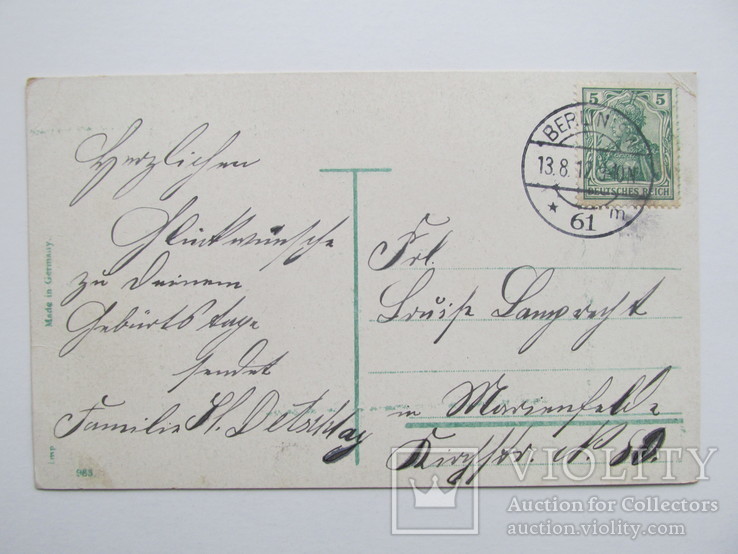 Herzlichen
Glückwünsche
zu Deinem
Geburtstage
sendet
Familie H.
Made in Germany.
imp
963
5 5
BERLIN
13.8.1
DEUTSCHES REICH
* 61 m
Frl.
Louise Lamprecht
in Marienfelde
VIOLITY
Auction for Collectors
auction.violity.com